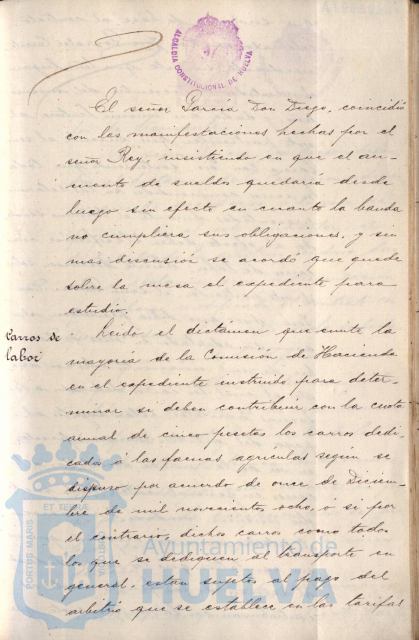 ALCALDIA CONSTITUCIONAL DE HUELVA
El señor García Don Diego, coincidió
con las manifestaciones hechas por el
señor Rey, insistiendo en que el au-
mento de sueldos quedaría desde
luego sin efecto en cuanto la banda
no cumpliera sus obligaciones, y sin
mas discusión se acordó que quede
sobre la mesa el expediente para
estudio.
Carros de
labor
Leido el dictámen que emite la
mayoría de la Comisión de Hacienda
en el expediente instruido para deter-
minar si deben contribuir con la cuota
anual de cinco pesetas los carros dedi-
cados á las faenas agrícolas según se
dispuso por acuerdo de once de Diciem-
bre de mil novecientos ocho, o si por
el contrario, dichos carros como todos
los que se dediquen al transporte en
general, estan sujetos al pago del
arbitrio que se establece en las tarifas
PORTUS MARIS ET TERRAE
Ayuntamiento de
HUELVA